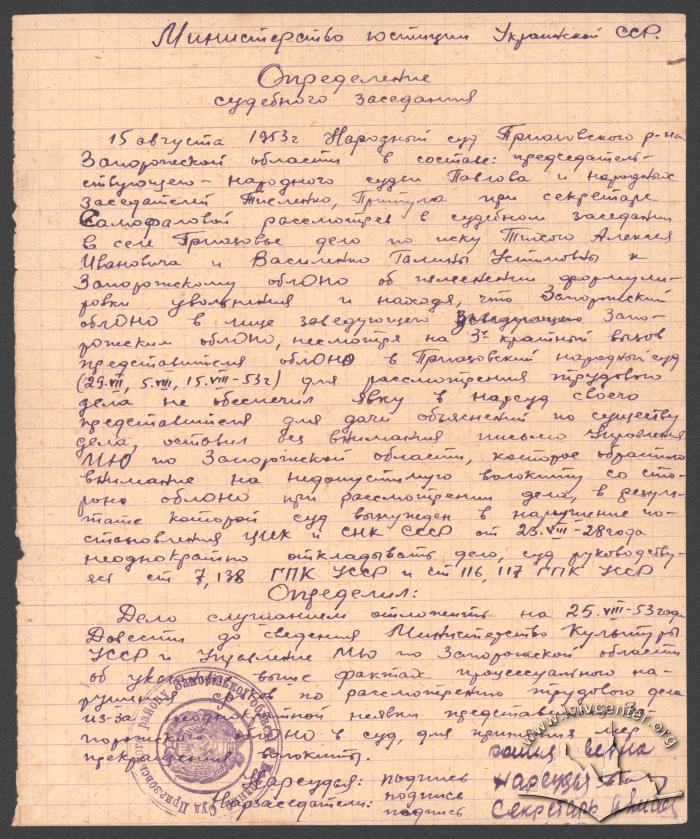 Министерство юстиции Украинской ССР.
Определение
судебного заседания
15 августа 1953г Народный суд Приазовского р-на
Запорожской области в составе: председатель-
ствующего - народного судьи Павлова и народных
заседателей Тисленко, Притула при секретаре
Самофаловой рассмотрев в судебном заседании
в селе Приазовье дело по иску Тихого Алексея
Ивановича и Василенко Галины Устимовны к
Запорожскому облОНО об изменении формули-
ровки увольнения и находя, что Запорожский
облОНО в лице заведующего Запо-
рожским облОНО, несмотря на 3х крайный вызов
представителя облОНО в Приазовский народный суд
(29.VII, 5.VIII, 15.VIII-53г) для рассмотрения трудового
дела не обеспечил явку в нарсуд своего
представителя для дачи объяснений по существу
дела, оставил без внимания письмо Управления
МЮ по Запорожской области, которое обратило
внимание на недопустимую волокиту со сто-
роны облОНО при рассмотрении дела, в резуль-
тате которой суд вынужден в нарушение по-
становления ЦИК и СНК СССР от 23.VIII-28года
неоднократно откладывать дело, суд руководству-
ясь ст 7, 138 ГПК УССР и ст 116, 117 ГПК УССР
Определил:
Дело слушанием отложить на 25.VIII-53года
Довести до сведения Министерство Культуры
УССР и Управление МЮ по Запорожской области
об указанных выше фактах процессуального на-
рушения сроков по рассмотрению трудового дела
из-за неоднократной неявки представителя За-
порожского облОНО в суд, для принятия мер
прекращения волокиты.
копия верна
Нарсудья: подпись
нарсудья
Нарзаседатели: подпись
подпись
Секретарь
www.lvivcenter.org